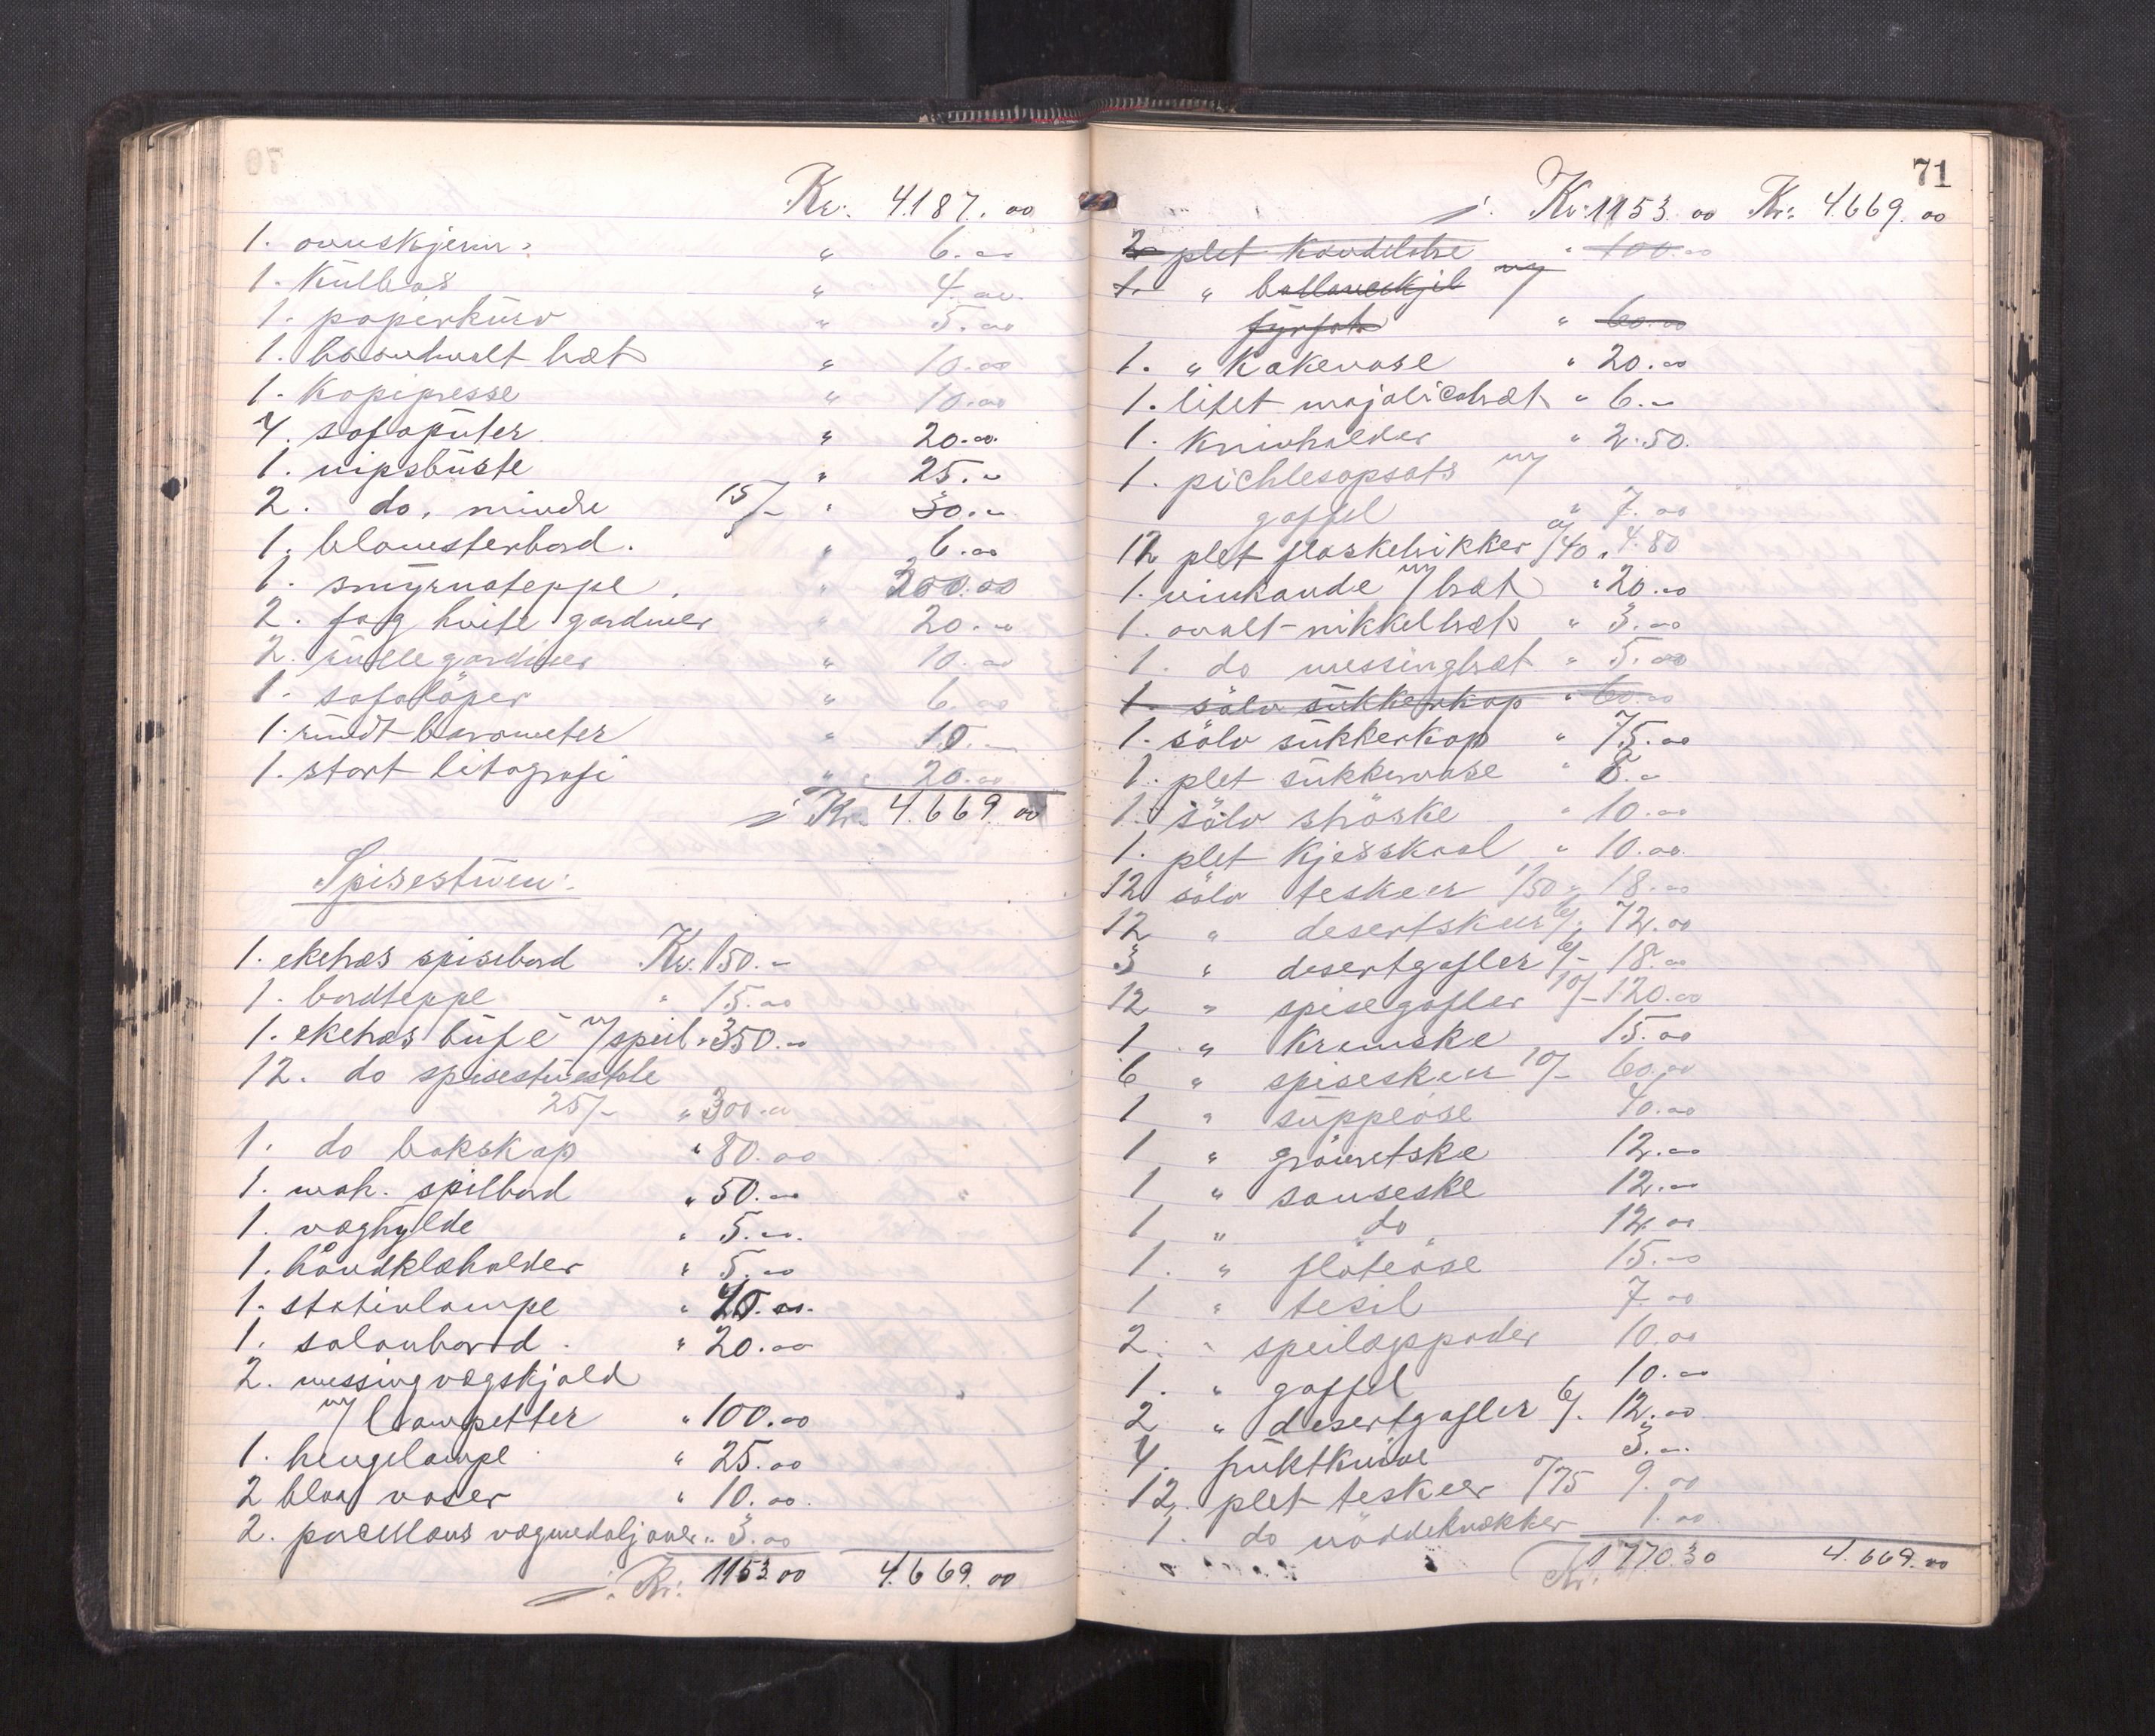 Kr. 4187.00
1. ovnskjerm. " 6.00
1. kulbox " 4.00
1. papirkurv " 5.00
1. haanhvalt bræt " 10.00
1. kopipresse " 10.00
4. sofaputer " 20.00
1. nipsbüste " 25.00
2. do. mindre 15/- " 30.00
1. blomsterbord. " 6.00
1. smyrnateppe. " 200.00
2. fag hvite gardiner " 20.00
2. rullegardiner " 10.00
1. sofalöper " 6.00
1. rundt barometer " 10.00
1. stort litografi " 20.00
Kr. 4.669.00
Spisestuen:
1. eketræs spisebord Kr. 150.00
1. bordteppe " 15.00
1. eketræs bufé m/speil " 350.00
12. do spisestuestole
25/- " 300.00
1. do bokskap " 80.00
1. mah. spilbord " 50.00
1. væghylde " 5.00
1. håndklæholder " 5.00
1. stativlampe " 40.00
1. salonbord. " 20.00
2. messing vægskjold
m/lampetter " 100.00
1. hengelampe " 25.00
2 blaa vaser " 10.00
2. porcellæns vægmedaljoner " 3.00
Kr: 1153.00 4.669.00
71
Kr: 1153.00 Kr: 4.669.00
2 plet kandelabre " 100.00
1. " ballonskjel m/
fyrfat " 60.00
1. " kakevase " 20.00
1. litet majolicabræt " 6.00
1. knivholder " 2.50.
1. pichlesopsats m/
gaffel " 7.00
12 plet flaskebrikker a/40 " 4.80
1. vinkande m/bræt " 20.00
1. ovalt nikkelbræt " 3.00
1. do messingbræt " 5.00
1. sölv sukkerkop " 60.00
1. sölv sukkerkop " 75.00
1. plet sukkervase " 8.00
1. sölv ströske " 10.00
1. plet kjesskaal " 10.00
12 sölv teskeer 1/50 " 18.00
12 " desertskeer 6/- 72.00
3 " desertgafler 6/- 18.00
12 " spisegafler 10/- 120.00
1 " kremske 15.00
6 " spiseskeer 10/- 60.00
1 " suppeöse 40.00
1 " grönnetske 12.00
1 " sauseske 12.00
1 " do 12.00
1. " flöteöse 15.00
1 " tesil 7.00
2. " speilægspader 10.00
1. " gaffel 10.00
2 " desertgafler 6/- 12.00
4. fruktknive 3.00
12. plet teskeer /75 9.00
1. do nöddeknækker 1.00
Kr. 1770.30 4.669.00